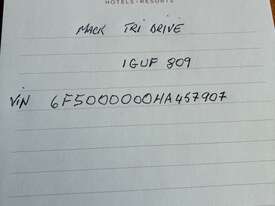 HOTELS • RESORTS
MACK TRI DRIVE
1GUF 809
VIN 6F5000000HA457907